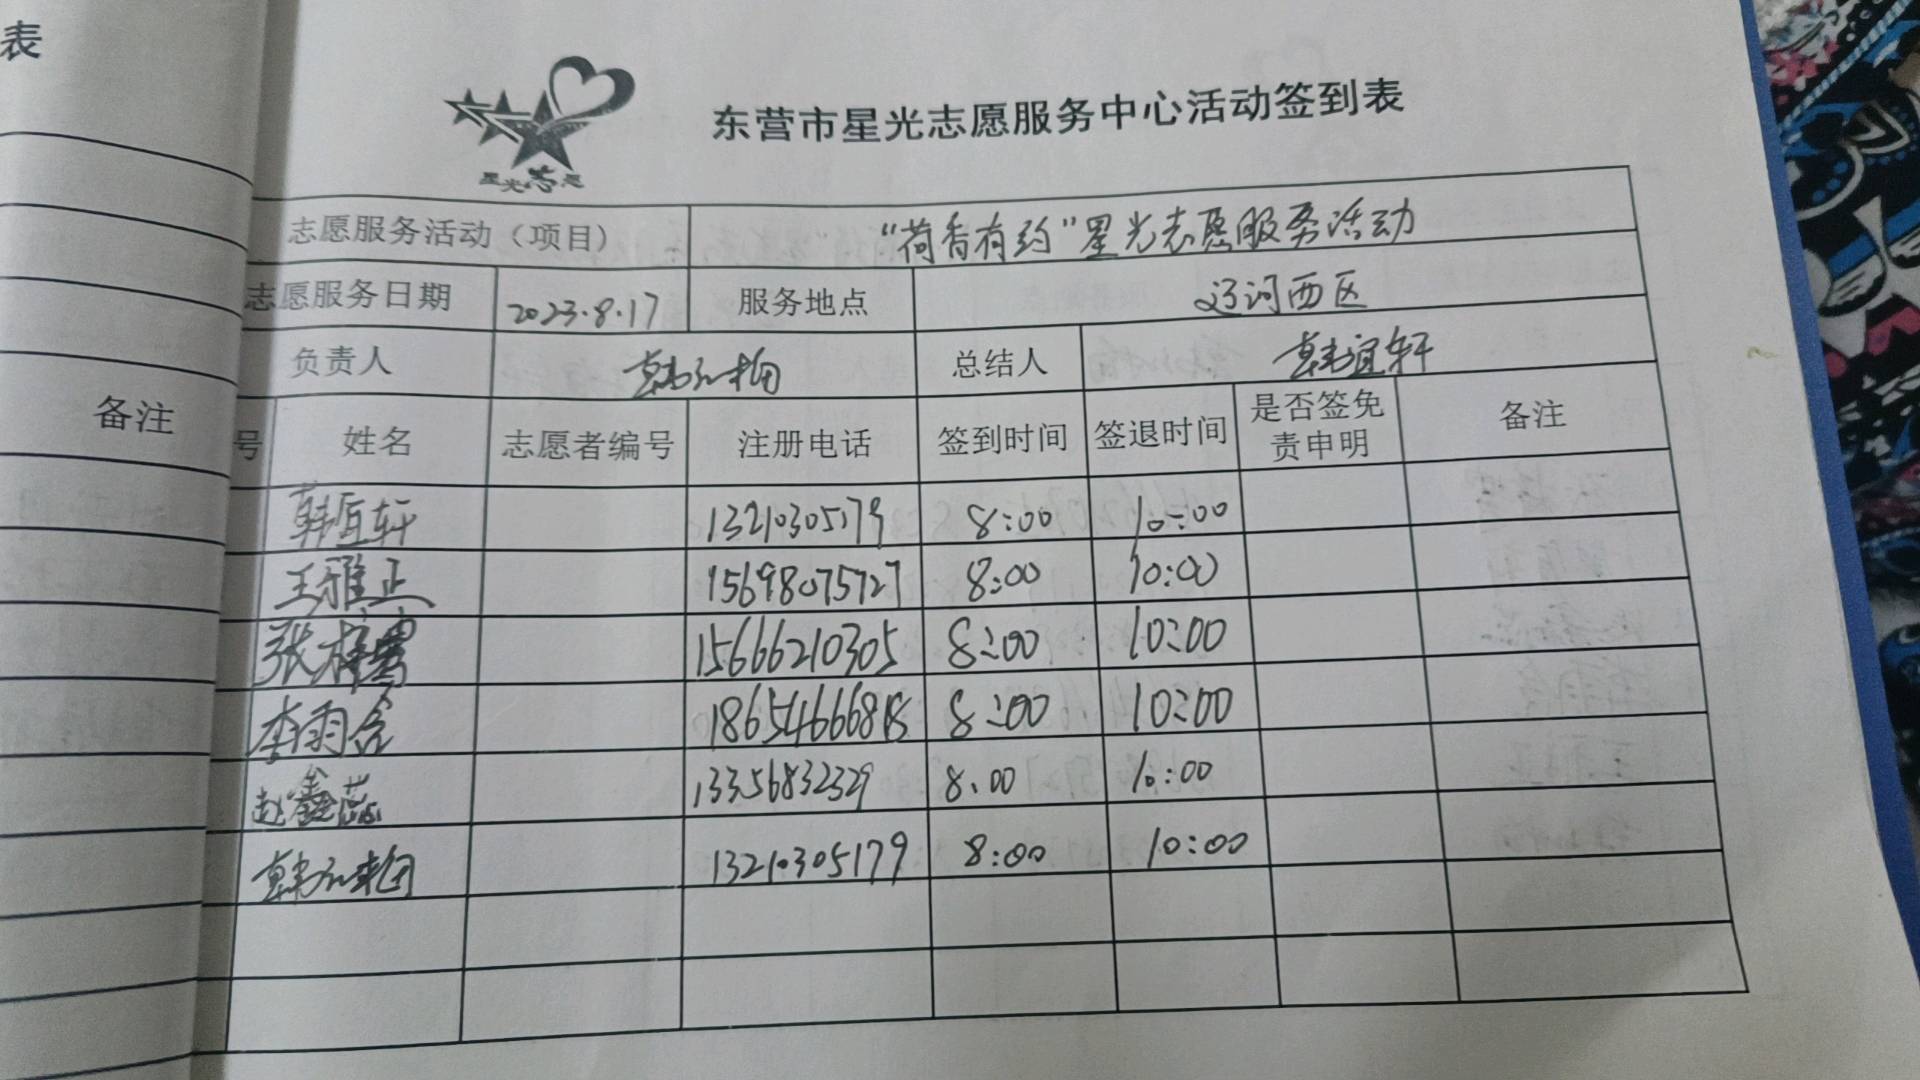 表
备注
星光志愿
东营市星光志愿服务中心活动签到表
志愿服务活动（项目） “荷香有约”星光志愿服务活动
志愿服务日期 2023.8.17 服务地点 辽河西区
负责人 总结人 韩宜轩
号 姓名 志愿者编号 注册电话 签到时间 签退时间 是否签免责申明 备注
韩宜轩 13210305179 8:00 10:00
王雅正 15698075727 8:00 10:00
张 15666210305 8:00 10:00
李雨含 8:00 10:00
赵鑫蕊 13356832329 8.00 10:00
13210305179 8:00 10:00